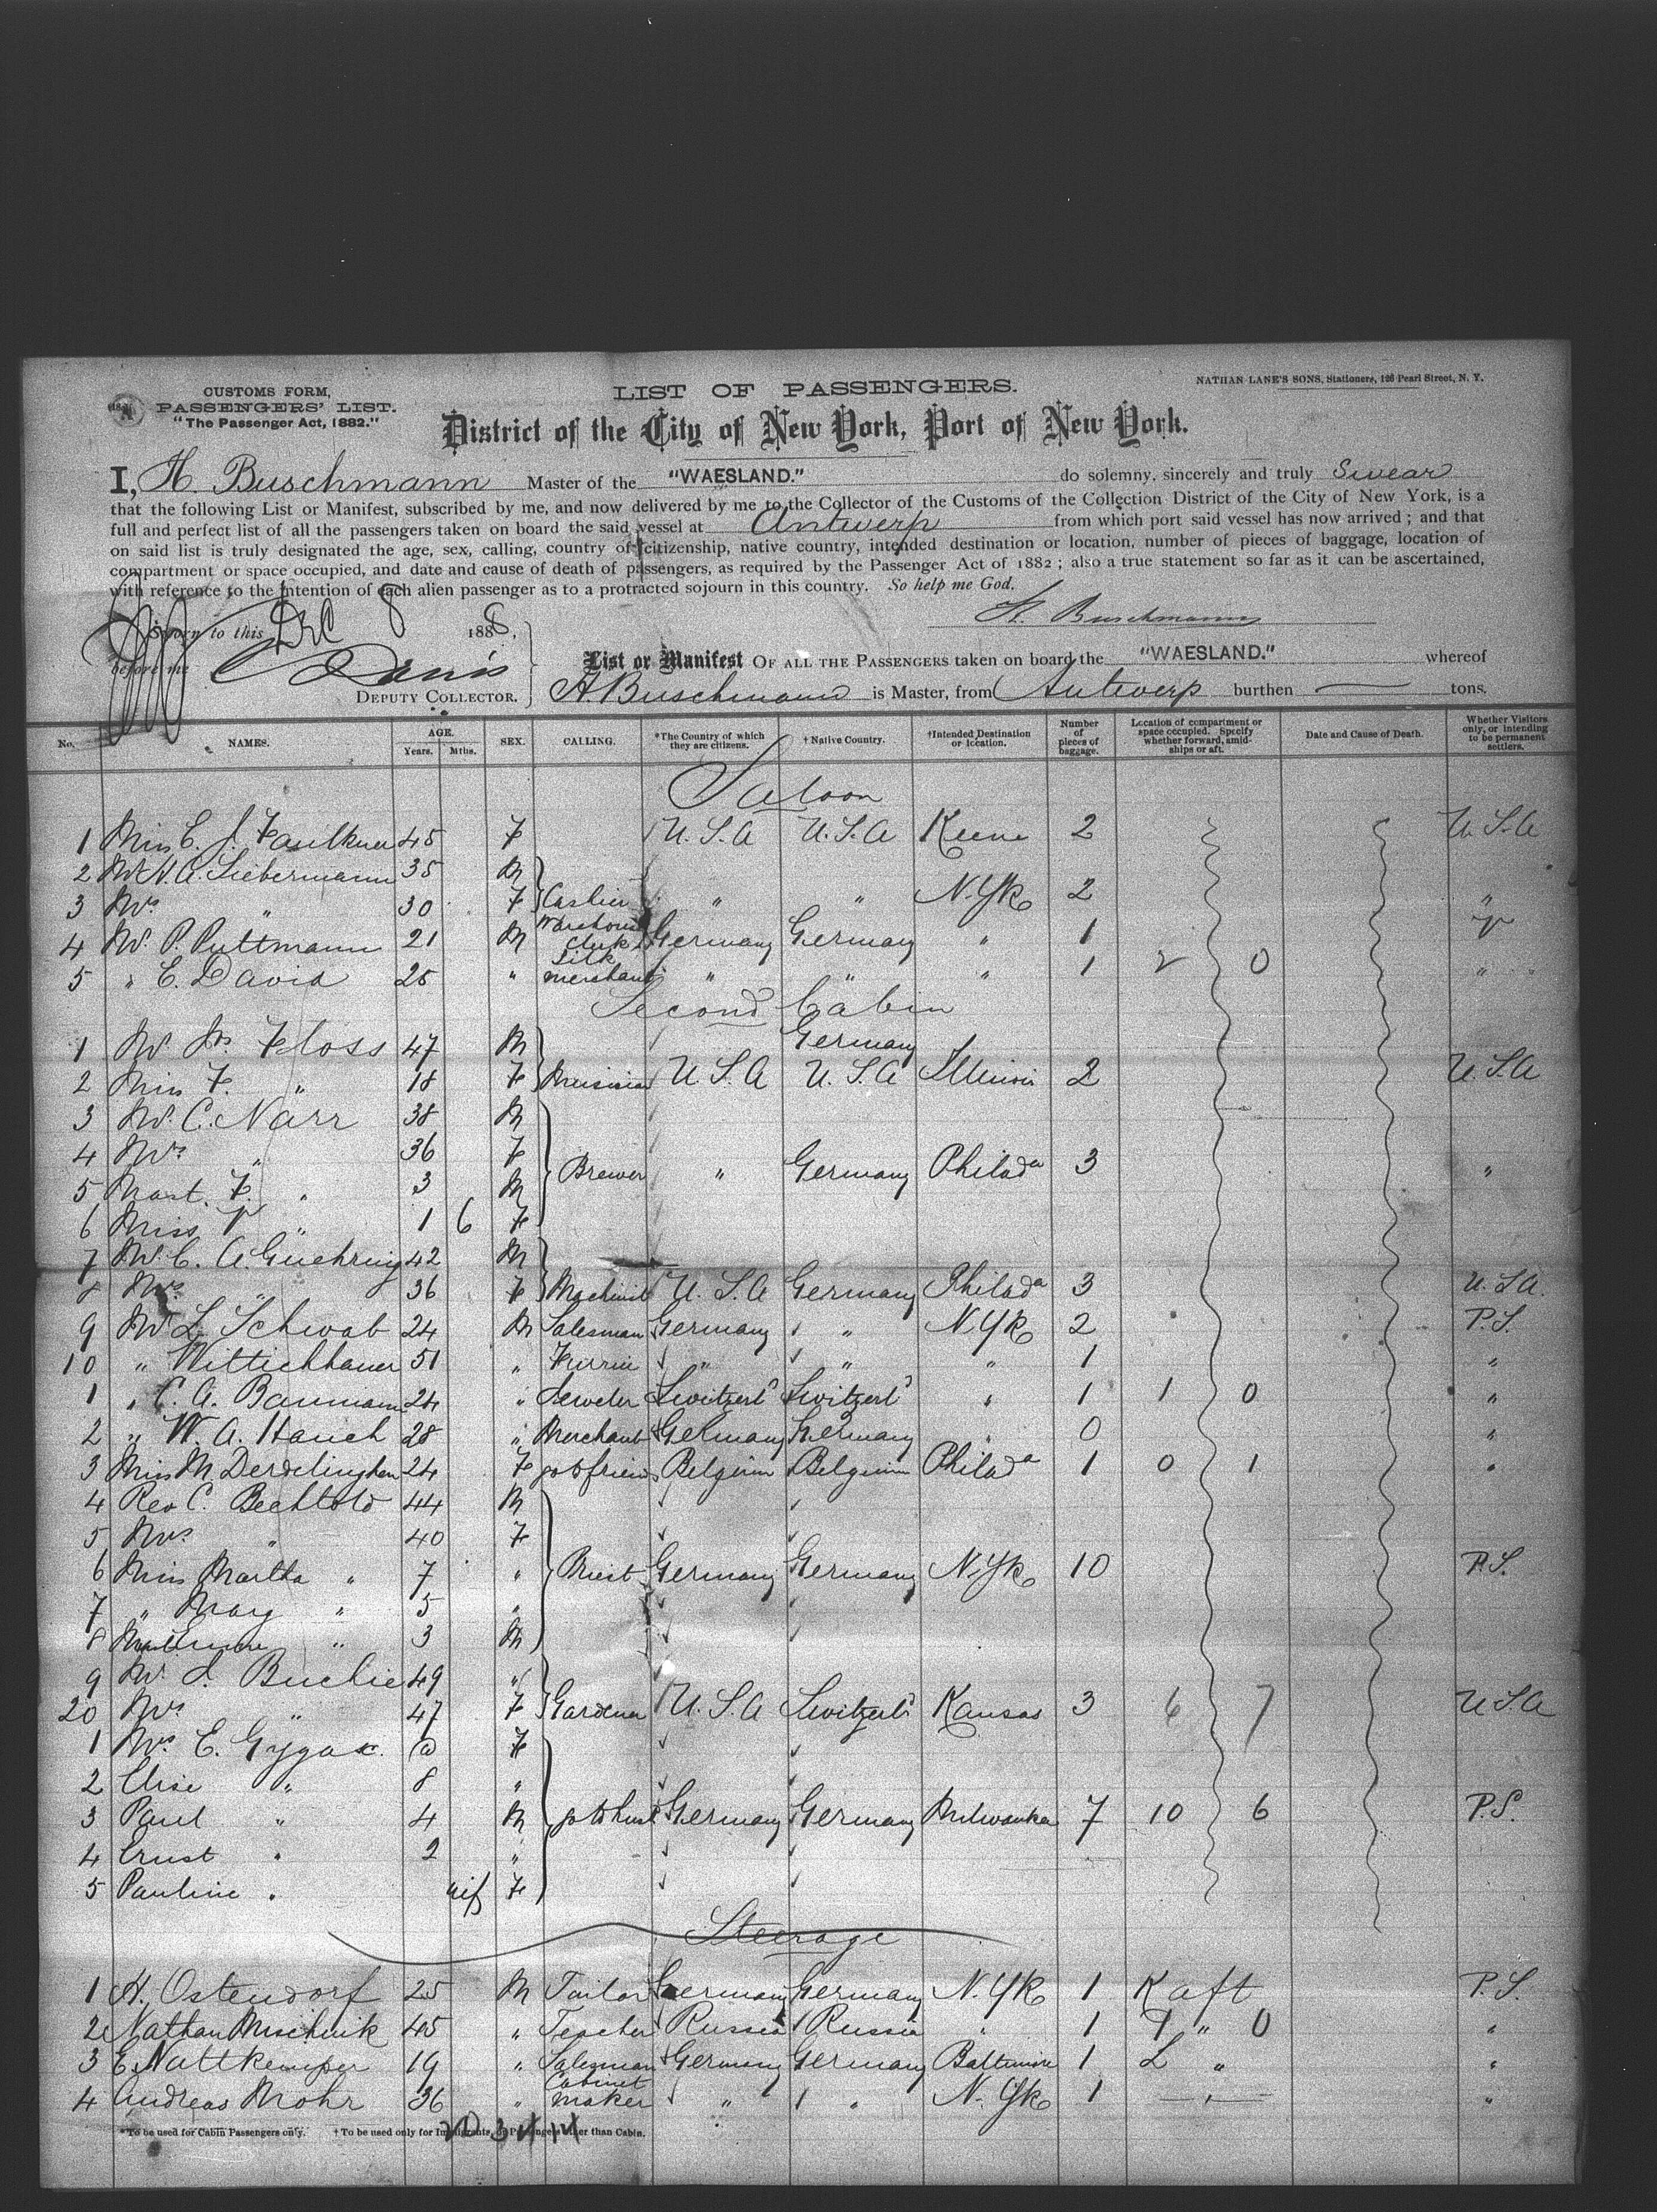 CUSTOMS FORM,
PASSENGERS' LIST.
"The Passenger Act, 1882."
LIST OF PASSENGERS.
NATHAN LANE'S SONS, Stationers, 126 Pearl Street, N. Y.
District of the City of New York, Port of New York.
I, H. Buschmann Master of the "WAESLAND." do solemny, sincerely and truly Swear
that the following List or Manifest, subscribed by me, and now delivered by me to the Collector of the Customs of the Collection District of the City of New York, is a
full and perfect list of all the passengers taken on board the said vessel at Antwerp from which port said vessel has now arrived; and that
on said list is truly designated the age, sex, calling, country of citizenship, native country, intended destination or location, number of pieces of baggage, location of
compartment or space occupied, and date and cause of death of passengers, as required by the Passenger Act of 1882; also a true statement so far as it can be ascertained,
with reference to the intention of each alien passenger as to a protracted sojourn in this country. So help me God.
H. Buschmann
Sworn to this Dec 8 1888,
before me
DEPUTY COLLECTOR.
List or Manifest OF ALL THE PASSENGERS taken on board the "WAESLAND." whereof
H Buschmann is Master, from Antwerp burthen — tons.
No. NAMES. AGE. Years. Mths. SEX. CALLING. *The Country of which they are citizens. †Native Country. †Intended Destination or location. Number of pieces of baggage. Location of compartment or space occupied. Specify whether forward, amidships or aft. Date and Cause of Death. Whether Visitors only, or intending to be permanent settlers.
Saloon
1 Miss E. J. Faulkner 45 F U.S.A U.S.A Keene 2 U.S.A
2 Mr. A. Liebermann 35 M
3 Mrs " 30 F Cashier " " N.Yk 2 "
4 Mr. P. Puttmann 21 M Clerk Germany Germany " 1
5 " E. David 25 " Silk merchant " " " 1 0 "
Second Cabin
1 Mr Floss 47 M Germany
2 Miss F. " 18 F Musician U.S.A U.S.A Illinois 2 U.S.A
3 Mr. C. Narr 38 M
4 Mrs " 36 F
5 Mast. F. " 3 M Brewer " Germany Philada 3 "
6 Miss " 1 6 F
7 Mr. C. A. Guehring 42 M
8 Mrs " 36 F Machinist U.S.A Germany Philada 3 U.S.A.
9 Mr L. Schwab 24 M Salesman Germany " N.Yk 2 P.S.
10 " 51 " Furrier " " " 1 "
1 " C. A. Baumann 24 " Jeweler Switzerld Switzerld " 1 1 0 "
2 " W. A. Hauch 28 " Merchant Germany Germany " 0 "
3 Miss M. 24 F Belgium Belgium Philada 1 0 1 "
4 Rev C. Bechtold 44 M
5 Mrs " 40 F
6 Miss Martha " 7 " Priest Germany Germany N.Yk 10 P.S.
7 " Mary " 5 "
8 " 3 M
9 Mr J. Buchie 49 "
20 Mrs " 47 F Gardener U.S.A Switzerld Kansas 3 6 7 U.S.A
1 Mrs E. Gygax F
2 Elise " 8 "
3 Paul " 4 M Germany Germany Milwaukee 7 10 6 P.S.
4 Ernst " 2 "
5 Pauline " inf F
Steerage
1 H. Ostendorf 25 M Tailor Germany Germany N.Yk 1 K aft P.S.
2 Nathan Mischnik 45 " Teacher Russia Russia " 1 " 0 "
3 E. Nattkemper 19 " Salesman Germany Germany Baltimore 1 L " "
4 Andreas Mohr 36 " Cabinet maker " " N.Yk 1 — " — "
*To be used for Cabin Passengers only. †To be used only for Immigrants, or Passengers other than Cabin.